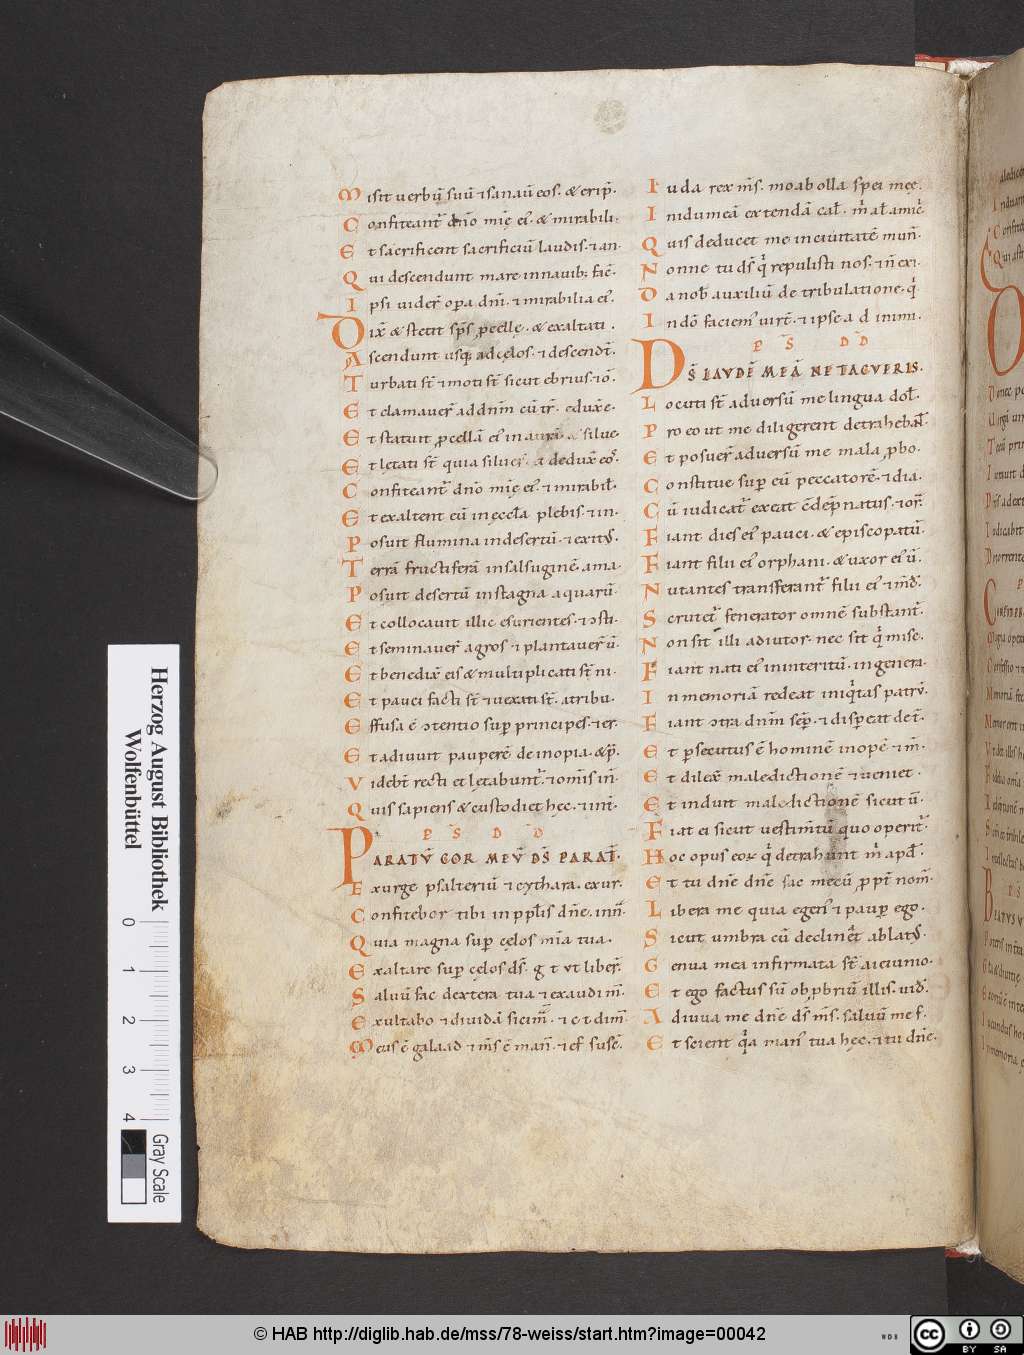 Misit uerbū suū ⁊sanauᷓ eos. & erip̄.
Confiteant᷑ dn̄o miꝫ ei᷑. & mirabili.
Et sacrificent sacrificiū laudis. ⁊ an
Qui descendunt mare innauib; fac̄.
Ipsi uider̄ opa dn̄i. ⁊ mirabilia ei᷑.
Dix̄ & stetit sp̄s pcellę. & exaltati.
Ascendunt usq; adcęlos. ⁊ descendt̄.
Turbati st̄ ⁊ moti st̄ sicut ebrius. ⁊ō.
Et clamauer̄ addn̄m cū tr̄. eduxe.
Et statuit pcellā ei᷑ in aurā. & silue
Et lętati st̄ quia siluer̄. & deduxē eo᷑.
Confiteant᷑ dn̄o miꝫ ei᷑. ⁊ mirabil̄.
Et exaltent eū inęccl̄a plebis. ⁊ in.
Posuit flumina indesertū. ⁊ exit᷑.
Terrā fructiferā insalsuginē. ama
Posuit desertū instagna aquarū.
Et collocauit illic esurientes. ⁊ ↄsti.
Et seminauer̄ agros ⁊ plantauer̄ ū.
Et benedix̄ eis & multiplicati st̄ ni.
Et pauci facti st̄ ⁊ uexati st̄. atribu.
Effusa ē ↄtentio sup principes. ⁊ er.
Et adiuuit pauperē deinopia. & p̄.
Videbt̄ recti et lętabunt᷑. ⁊ omīs in̄.
Quis sapiens & custodiet hęc. ⁊ int̄.
P̄S̄ D̄D̄
PARATV̄ COR MEV̄ DS̄ PARAT̄.
Exurge psalteriū ⁊ cythara. exur.
Confitebor tibi in pplīs dn̄e. inn̄.
Quia magna sup cęlos mīa tua.
Exaltare sup cęlos ds̄. g t vt liber̄.
Saluū fac dextera tua ⁊ exaudi m̄.
Exultabo ⁊ diuidā sicim̄. ⁊ c t dim̄.
Meus ē galaad ⁊ m̄s ē man̄. ⁊ ef susē.
Iuda rex m̄s. moab olla spei meę.
Inidumeā extendā cal̄. m̄ al̄ amic̄.
Quis deducet me inciuitatē mun̄.
Nonne tu ds̄ q̄ repulisti nos. ⁊n̄ exi.
Da nob̄ auxiliū de tribulatione. q̄
Indō faciem᷑ uirt̄. ⁊ ipse a d inimi.
P̄ S̄ D̄D̄
DS̄ LAVDĒ MEĀ NE TACVERIS.
Locuti st̄ aduersū me lingua dol̄.
Pro eo ut me diligerent detrahebal̄
Et posuer̄ aduersū me mala pbo.
Constitue sup eū peccatorē. ⁊ dia.
Cū iudicat᷑ exeat cōdēpnatus. ⁊ or̄.
Fiant dies ei᷑ pauci. & episcopatū.
Fiant filii ei᷑ orphani. & uxor ei᷑ ū.
Nutantes transferant᷑ filii ei᷑ ⁊ m̄d̄.
Scrutet᷑ fenerator omnē substant̄.
Non sit illi adiutor. nec sit q̄ mise.
Fiant nati ei᷑ ininteritū. ingenera
In memoriā redeat iniq̄tas patr̄.
Fiant ↄtra dn̄m sep. ⁊ dispeat det̄.
Et psecutus ē hominē inopē ⁊ m̄.
Et dilex̄ maledictionē ⁊ ueniet.
Et induit maledictionē sicut ū.
Fiat ei sicut uestim̄tū quo operit᷑.
Hoc opus eoꝝ q̄ detrahunt m̄ apd̄.
Et tu dn̄e dn̄e fac mecū ppt̄ nom̄.
Libera me quia egen᷑ ⁊ paup ego.
Sicut umbra cū declinet̄ ablat᷑.
Genua mea infirmata st̄ aieiunio.
Et ego factus sū obpbriū illis. uid̄.
Adiuua me dn̄e ds̄ m̄s. saluū me f.
Et scient q̄a man᷑ tua hęc. ⁊ tu dn̄e.
Herzog August Bibliothek
Wolfenbüttel
0 1 2 3 4
Gray Scale
© HAB http://diglib.hab.de/mss/78-weiss/start.htm?image=00042
WDB
cc BY SA